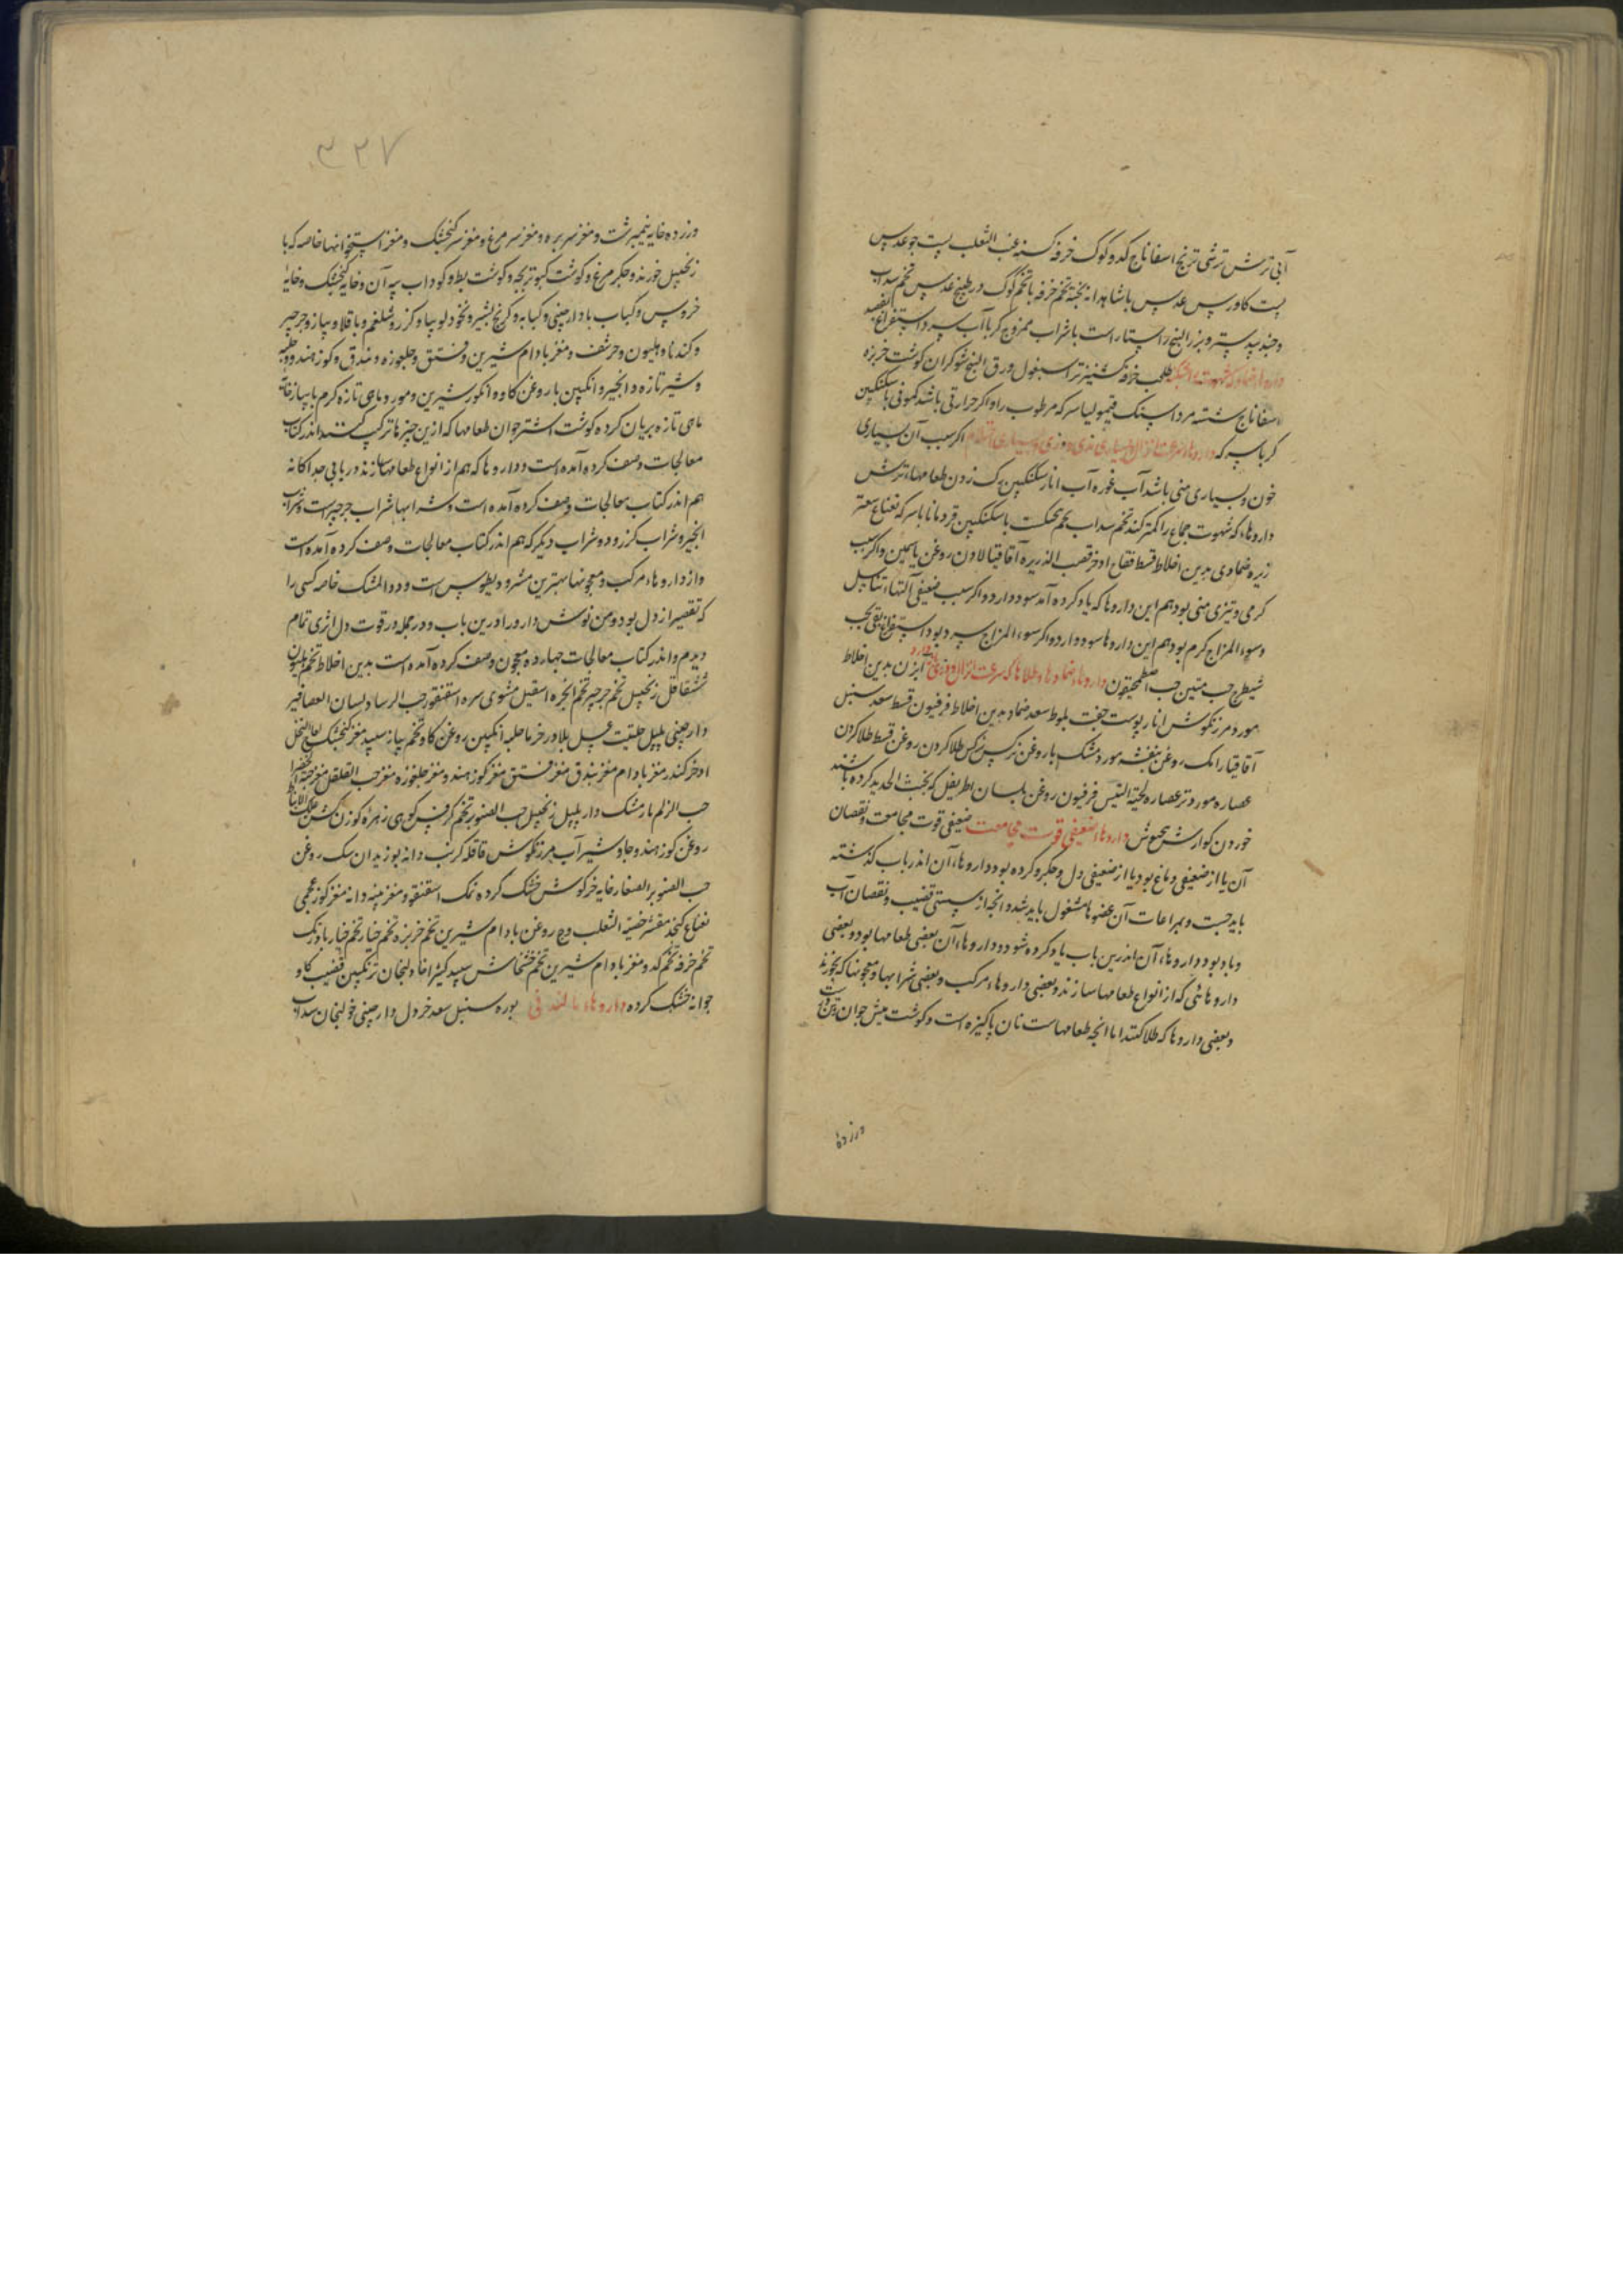 آبی ترش ترشی ترنج اسفاناج کدو کوک خرفه کسنه عنب الثعلب پست جو عدس
پست کاورس عدس با شاهدانه پخته تخم خرفه با تخم کوک در طبیخ عدس تخم سداب
وجندبیدستر و بزر البنج راستاراست با شراب ممزوج کر با آب سرد استفراغ بفصد
داروها ضماد که شهوت بشکند طحلب خرفه کشنیز تر اسبغول ورق البنج شوکران کوشت خربزه
اسفاناج شسته مرداسنک قیمولیا سرکه مرطوب را و اکر حرارتی باشد کمونی با سکنکبین
کر با سرکه داروها سرعت انزال و بسیاری مذی و وذی و بسیاری احتلام اکر سبب آن بسیاری
خون و بسیاری منی باشد آب غوره آب انار سکنکبین رک زدن طعامهاء ترش
داروهاء که شهوت جماع را کمتر کند تخم سداب تخم بنجنکشت با سکنکبین قردمانا با سرکه نعناع سعتر
زیره ضمادی بدین اخلاط قسط فقاح اذخر قصب الذریره آقاقیا لادن روغن یاسمین و اکر سبب
کرمی و تیزی منی بود هم این داروها که یاد کرده آمد سود دارد و اکر سبب ضعیفی آلتهاء تناسل
وسوء المزاج کرم بود هم این داروها سود دارد و اکر سوء المزاج سرد بود استفراغ بقی بحب
شیطرج حب منتن حب اصطمحیقون داروهاء ضمادها و طلاها که سرعت انزال و مذی بازدارد ابزن بدین اخلاط
مورد مرزنکوش انار پوست جفت بلوط سعد ضماد بدین اخلاط فرفیون قسط سعد سنبل
آقاقیا رامک روغن بنفشه مورد مشک یا روغن نرکس نرکس طلا کردن روغن قسط طلا کردن
عصاره مورد تر عصاره لحیة التیس فرفیون روغن بلسان اطریفل که بخبث الحدید کرده باشند
خوردن کوارش داروهاء ضعیفی قوت مجامعت ضعیفی قوت مجامعت و نقصان
آن یا از ضعیفی دماغ بود یا از ضعیفی دل و جکر و کرده بود داروهاء آن اندر باب کذشته
باید جست و بمراعات آن عضوها مشغول باید شد و آنچه از سستی قضیب و نقصان آب
و باد بود داروهاء آن اندرین باب یاد کرده شود و داروهاء آن بعضی طعامها بود و بعضی
داروهائی که از انواع طعامها سازند و بعضی داروهاء مرکب و بعضی شرابها و معجونها که بخورند
و بعضی داروها که طلا کنند اما آنچه طعامهاست نان پاکیزه است و کوشت میش جوان
ورزده
۳۲۷
ورزده خایه نیمبرشت و مغز سر بره و مغز سر مرغ و مغز سر کنجشک و مغز استخوانها خاصه که با
زنجبیل خورند و جکر مرغ و کوشت کبوتر بچه و کوشت بط و کوداب پیه آن و خایه کنجشک و خایهٔ
خروس و کباب با دارچینی و کبابه و کرنج بشیر و نخود و لوبیا و کزر و شلغم و باقلا و پیاز و جرجیر
و کندنا و هلیون و حرشف و مغز بادام شیرین و فستق و جلغوزه و بندق و کوز هندو و حلبه
و شیر تازه و انجیر و انکبین با روغن کاو و انکور شیرین و مور و ماهی تازه کرم با پیاز
ماهی تازه بریان کرده کوشت اشتر جوان طعامها که ازین چیزها ترکیب کنند اندر کتاب
معالجات وصف کرده آمده است و داروها که هم از انواع طعامها سازند در بابی جداکانه
هم اندر کتاب معالجات وصف کرده آمده است و شرابها شراب جرجیر است و شراب
انجیر و شراب کزر و دو شراب دیکر که هم اندر کتاب معالجات وصف کرده آمده است
واز داروهاء مرکب و معجونها بهترین مثرودیطوس است و دواء المشک خاصه کسی را
که تقصیر از دل بود و من نوش دارو را درین باب و در جمله در قوت دل اثری تمام
دیدم و اندر کتاب معالجات چهارده معجون وصف کرده آمده است بدین اخلاط تخم هلیون
شقاقل زنجبیل تخم جرجیر تخم انجره اسقیل مشوی سره اسقنقور حب الرساد لسان العصافیر
دارچینی پلپل حلتیت عسل بلادر خرما حلبه انکبین روغن کاو تخم پیاز سپید مغز کنجشک
اذخر کندر مغز بادام مغز بندق مغز فستق مغز کوز هندو مغز جلغوزه مغز حب القلقل مغز حبة الخضرا
حب الزلم بار مشک دارپلپل زنجبیل حب الصنوبر تخم کرفس کوهی زهره کوزن کشن علک الانباط
روغن کوز هندو جاوشیر آب مرزنکوش قاقله کرنب دانه بوزیدان سک روغن
حب الصنوبر الصغار خایه خرکوش خشک کرده نمک اسقنقور مغز پنبه دانه مغز کوز عجمی
نعناع کنجد مقشر خصیة الثعلب وج روغن بادام شیرین تخم خربزه تخم خیار تخم خیار بادرنک
تخم خرفه تخم کدو مغز بادام شیرین تخم خشخاش سپید کثیرا خاولنجان ترنکبین قضیب کاو
جوانه خشک کرده داروهاء مالیدنی بوره سنبل سعد خردل دارچینی خولنجان سداب